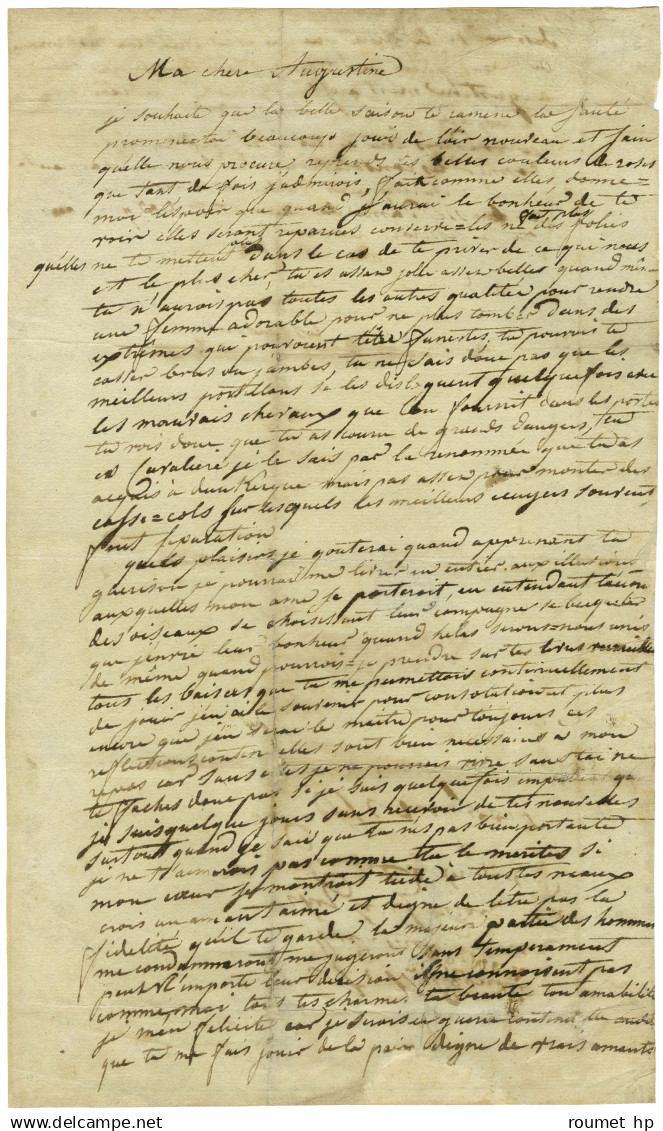 Ma chere Augustine
je souhaite que la belle saison te ramene la santé
promene toi beaucoup jouis de l'air nouveau et sain
quelle nous procure reprends tes belles couleurs de roses
que tant de fois j'admirois, fait comme elles donne=
moi l'espoir que quand j'aurai le bonheur de te
voir elles seront reparues conserve=les ne fais plus des folies
qu'elles ne te mettent plus dans le cas de te priver de ce qui nous
est le plus cher, tu es assez jolie assez belle quand mê=
tu n'aurois pas toutes les autres qualitée pour rendre
une femme adorable pour ne plus tomber dans des
extrêmes qui pouroient t'être funestes, tu pouvois te
casser bras ou jambes, tu ne sais donc pas que les
meilleurs postillons se les disloquent quelque fois avec
les mauvais chevaux que l'on fournit dans les postes
tu vois donc que tu as couru de grands dangers, tu
es Cavaliere je le sais par la renommée que tu as
acquis à dunkerque mais pas assez pour monter des
casse=cols sur lesquels les meilleurs ecuyers souvent
font separation
quels plaisirs je gouterai quand apprenant ta
guerison je pourrai me livrer en entier aux illusions
auxquelles mon ame se porteroit, en entendant
des oiseaux se choisissant leur compagne se becqueter
que j'envie leur bonheur quand helas serons=nous unis
de même, quand pourrois=je prendre sur tes levres
tous les baisers que tu me permettois continuellement
de jouir j'en ai le souvenir pour consolation et plus
encore que j'en serai le maitre pour toujours ces
reflections elles sont bien necessaires a mon
repos car sans elles je ne pourrois vivre sans toi ne
te faches donc pas si je suis quelque fois impatient
je suis quelque jours sans recevoir de tes nouvelles
surtout quand je sais que tu n'es pas bien portante
je ne t'aimerois pas comme tu le merites si
mon cœur se montroit tiede a tous tes meaux
crois un amant aimé et digne de l'être pas la
fidelité qu'il te garde la majeure partie des hommes
me condamneront me jugeront sans temperament
peut l'importe leur decision ils ne connoissent pas
comme moi tous tes charmes ta beauté ton amabilité
je m'en felicite car je serois en guerre
que tu me fais jouir de la paix digne de vrais amants
roumet hp